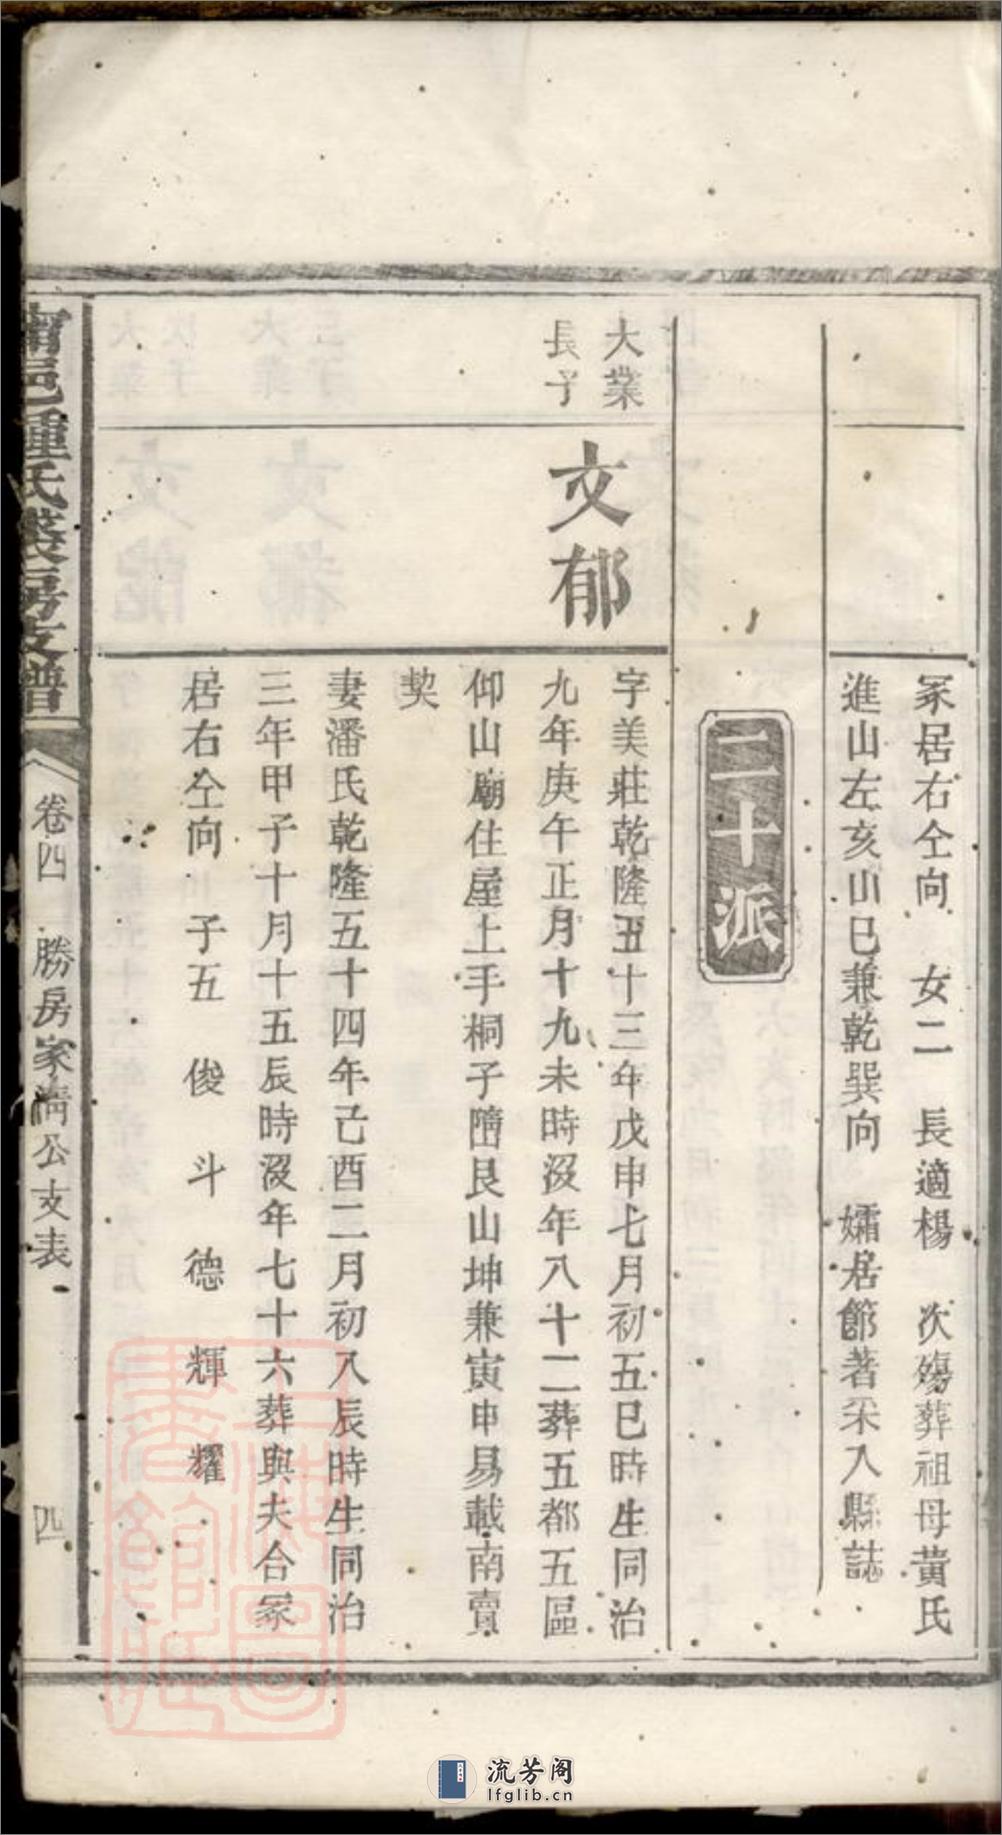 冢居右仝向　女二　長適楊　次殤葬祖母黃氏
進山左亥山巳兼乾巽向　孀居節著采入縣誌
二十派
大業
長子
文郁
字美莊乾隆五十三年戊申七月初五巳時生同治
九年庚午正月十九未時沒年八十二葬五都五區
仰山廟住屋上手桐子隋艮山坤兼寅申易載南賣
契
妻潘氏乾隆五十四年己酉二月初八辰時生同治
三年甲子十月十五辰時沒年七十六葬與夫合冢
居右仝向　子五　俊　斗　德　輝　耀
南邑鍾氏裘房支譜
卷四　勝房家清公支表
四
上海圖書館藏
流芳阁
lfglib.cn